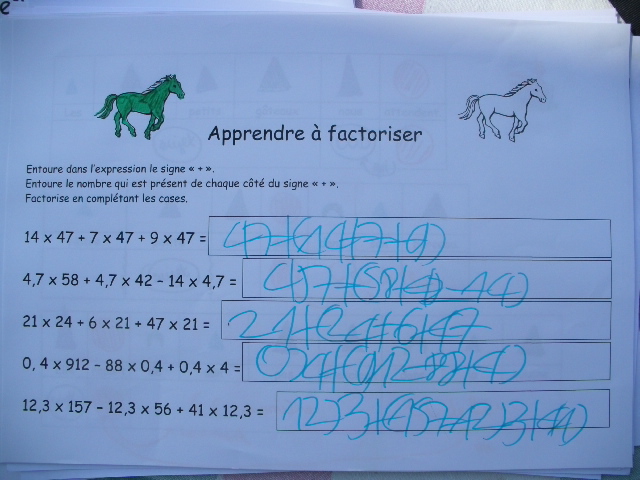 Apprendre à factoriser
Entoure dans l'expression le signe « + ».
Entoure le nombre qui est présent de chaque côté du signe « + ».
Factorise en complétant les cases.
14 x 47 + 7 x 47 + 9 x 47 = 47+(14+7+9)
4,7 x 58 + 4,7 x 42 - 14 x 4,7 =
21 x 24 + 6 x 21 + 47 x 21 = 21+(24+6+47
0, 4 x 912 - 88 x 0,4 + 0,4 x 4 = 0,4+(912-88+4)
12,3 x 157 - 12,3 x 56 + 41 x 12,3 =